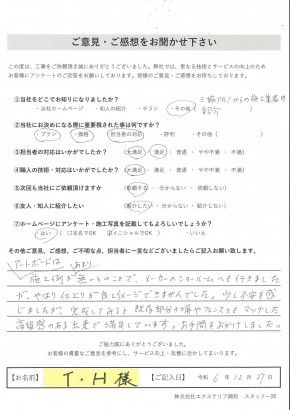 ご意見・ご感想をお聞かせ下さい
この度は、工事をご依頼頂き誠にありがとうございました。弊社では、更なる技術とサービスの向上のため
お客様にアンケートのご回答をお願いしております。皆様のご意見・ご感想をお待ちしております。
①当社をどこでお知りになりましたか？
・当社ホームページ ・知人の紹介 ・チラシ ・その他(三協アルミからの施工業者の紹介
②当社にお決めになる際に重要視された事は何ですか？
・プラン ・価格 ・担当者の対応 ・評判 ・その他( )
③担当者の対応はいかがでしたか？ (大満足 ・ 満足 ・ 普通 ・ やや不満 ・ 不満)
④職人の技術・対応はいかがでしたか？ (大満足 ・ 満足 ・ 普通 ・ やや不満 ・ 不満)
⑤次回も当社にご依頼頂けますか (依頼する ・ 分からない ・ 依頼しない)
⑥友人・知人に紹介したい (紹介したい ・ 分からない ・ 紹介しない)
⑦ホームページにアンケート・施工写真を記載してもよろしいでしょうか？
・はい (□本名でOK ☑イニシャルでOK) ・いいえ
その他ご意見、ご感想、ご不明な点、担当者に一言などございましたらご記入お願い致します。
アートボードは あまり
施工例が無いとのことで、メーカーのショールームへも行きました
が、やはり仕上りが役イメージできませんでした。少し不安を感
じましたが、完成してみると既存部分の塀やフェンスともマッチした
高級感のある出来で満足しています。お手間をおかけしました。
ご協力誠にありがとうございました。
お客様の貴重なご意見を参考にし、サービス向上・改善に活かしてまいります。
【お名前】 T・H 様 【ご記入日】 令和 6年 12月 27日
株式会社エクステリア興和 スタッフ一同